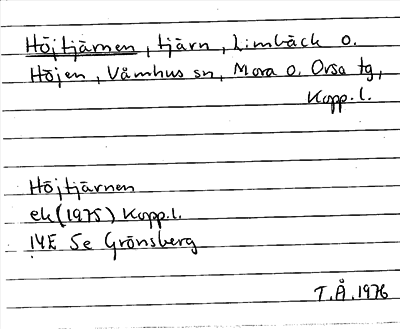 Höjtjärnen, tjärn, Limbäck o.
Höjen, Våmhus sn, Mora o. Orsa tg,
Kopp.l.
Höjtjärnen
ek (1975) Kopp.l.
14E Se Grönsberg
T.Å. 1976